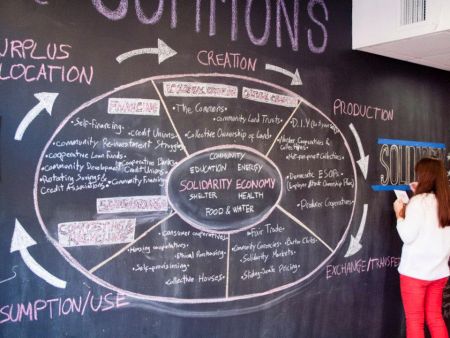 COMMONS
SURPLUS
LOCATION
CREATION
PRODUCTION
EXCHANGE/TRANSFER
SUMPTION/USE
COMMUNITY
EDUCATION ENERGY
SOLIDARITY ECONOMY
SHELTER HEALTH
FOOD & WATER
Self-financing
Credit Unions
Community Re-investment Struggle
Cooperative Loan Funds
Cooperative Banks
Community Development Credit Unions
Rotating Savings &
Credit Associations
Community Financing
The Commons
Community Land Trusts
Collective Ownership of Land
D.I.Y.
Worker Cooperatives &
Collectives
Democratic ESOPs
(Employee Stock Ownership Plan)
Producer Cooperatives
Consumer cooperatives
Housing cooperatives
Ethical Purchasing
Self-provisioning
Collective Houses
Fair Trade
Community Currencies
Barter Clubs
Solidarity Markets
Sliding-Scale Pricing